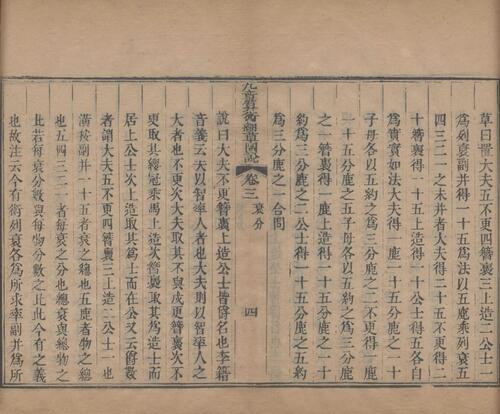 草曰置大夫五不更四簪裹三上造二公士一
為列衰副并得一十五為法以五鹿乘列衰五
四三二一之未并者大夫得二十五不更得二
十簪裹得一十五上造得一十公士得五各自
為實實如法大夫得一鹿一十五分鹿之一十
子母各以五約之為三分鹿之二不更得一鹿
一十五分鹿之五子母各以五約之為三分鹿
之一簪裹得一鹿上造得一十五分鹿之一十
約為三分鹿之二公士得一十五分鹿之五約
為三分鹿之一合問
九章算術細草圖說 卷三 衰分 四
說曰大夫不更簪裹上造公士皆爵名也李籍
音義云夫以智率人者也大夫則以智率人之
大者也不更次大夫取其不與戍更簪裹次不
更取其纓冠乘馬上造次簪裹取其為造士而
居上公士次上造取其為士而在公又云爵數
者謂大夫五不更四簪裹三上造二公士一也
潢按副并一十五者衰之總也五鹿者物之總
也五四三二一者每衰之分也總衰與總物之
比若每衰分數與每物分數之比此今有之義
也故注云今有術列衰各為所求率副并為所